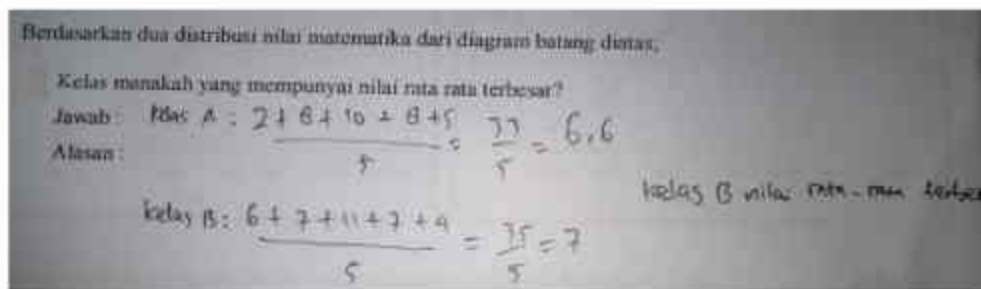 Berdasarkan dua distribusi nilai matematika dari diagram batang diatas,
Kelas manakah yang mempunyai nilai rata rata terbesar?
Jawab: Kelas A : 2 + 8 + 10 + 8 + 5 / 5 = 33 / 5 = 6,6
Alasan :
kelas B nilai rata-rata
kelas B : 6 + 7 + 11 + 7 + 4 / 5 = 35 / 5 = 7